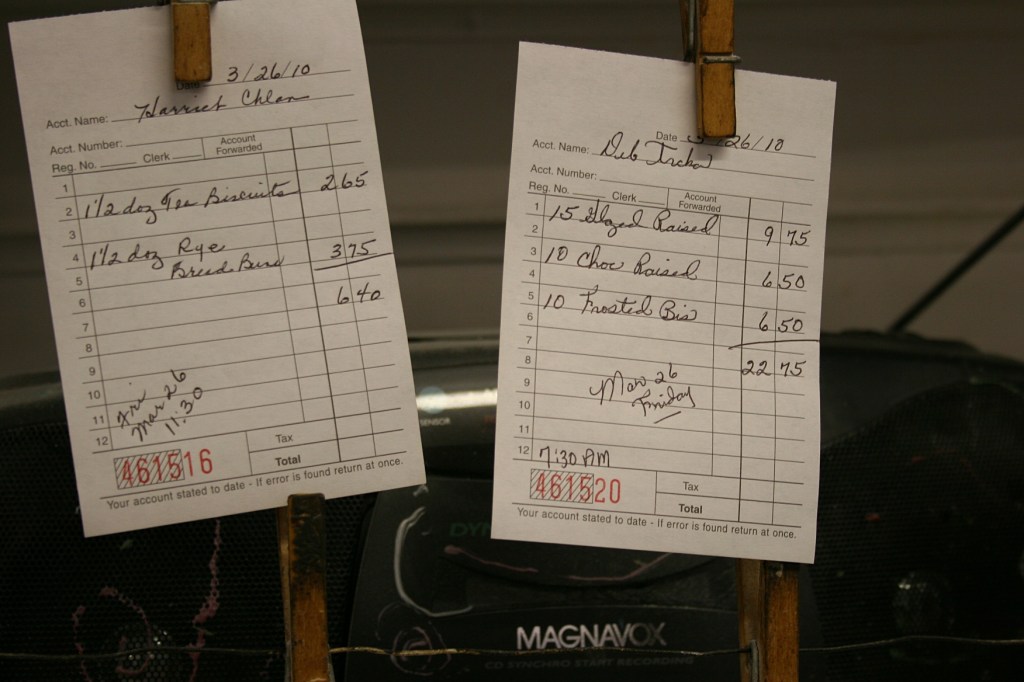 Date 3/26/10
Acct. Name: Harriet Chlan
Acct. Number:
Reg. No. Clerk Account Forwarded
1
2 1 1/2 doz Tea Biscuits 2 65
3
4 1 1/2 doz Rye
5 Bread Buns 3 75
6 6 40
7
8
9
10 Fri
11 Mar 26
12 11:30
46151516
Tax
Total
Your account stated to date - If error is found return at once.
Date 3/26/10
Acct. Name: Deb
Acct. Number:
Reg. No. Clerk Account Forwarded
1 15 Glazed Raised 9 75
2
3 10 Choc Raised 6 50
4
5 10 Frosted Bis 6 50
6
7
8 22 75
9 Mar 26
10 Friday
11
12 7:30 AM
461520
Tax
Total
Your account stated to date - If error is found return at once.
SENSOR
DYN
MAGNAVOX
CD SYNCHRO START RECORDING